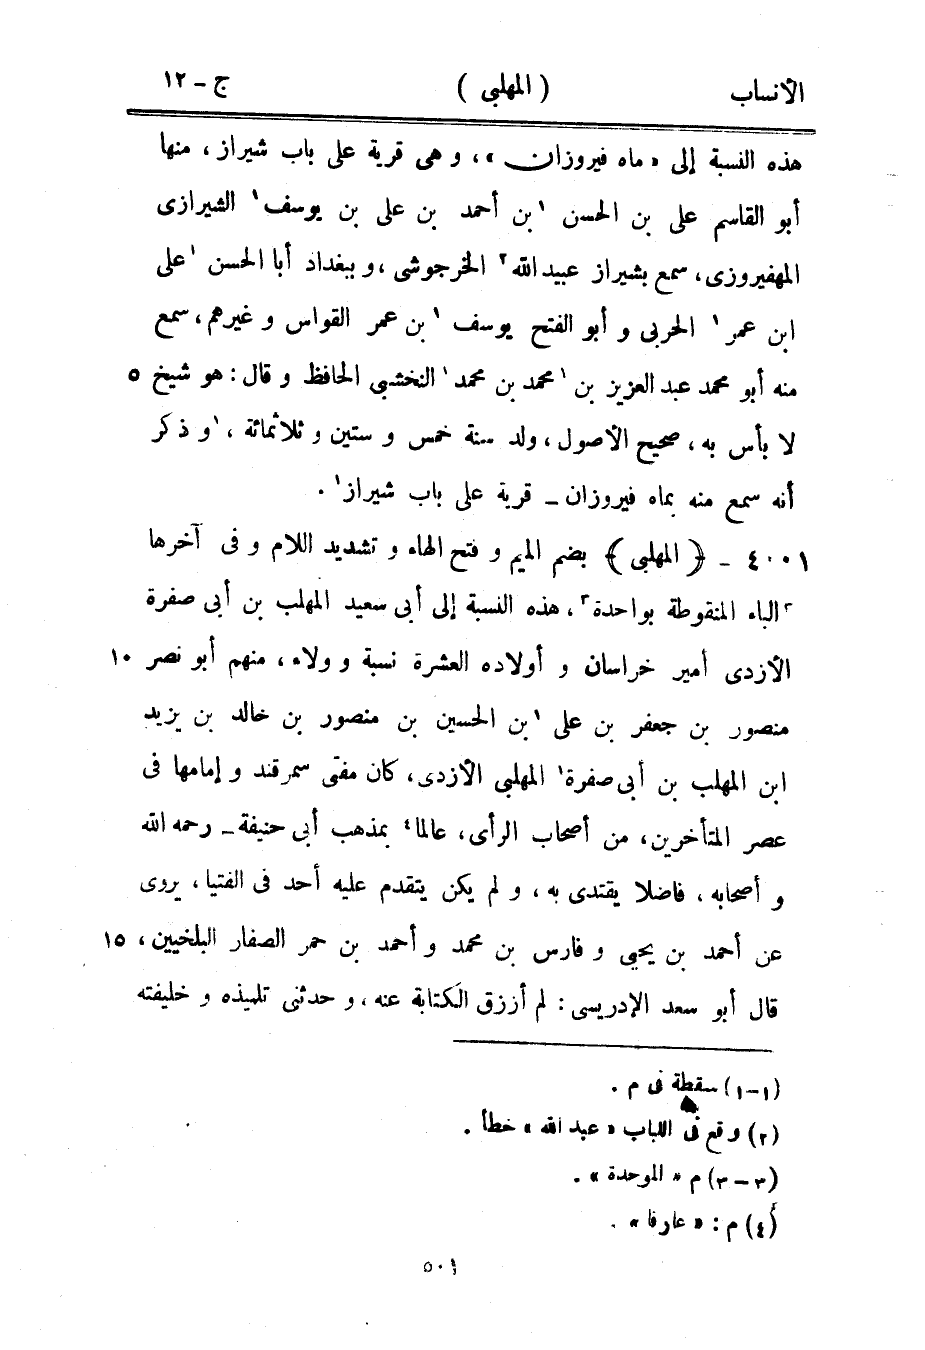 الأنساب ( المهلبى ) ج - ١٢
هذه النسبة إلى «ماه فيروزان»، و هى قرية على باب شيراز، منها
أبو القاسم على بن الحسن ١بن أحمد بن على بن يوسف١ الشيرازى
المهفيروزى، سمع بشيراز عبيد الله٢ الخرجوشى، و ببغداد أبا الحسن ١على
ابن عمر١ الحربى و أبو الفتح يوسف ١بن عمر القواس و غيرهم، سمع
منه أبو محمد عبد العزيز بن ١محمد بن محمد١ النخشبى الحافظ و قال: هو شيخ ٥
لا بأس به، صحيح الأصول، ولد سنة خمس و ستين و ثلاثمائة، ١و ذكر
أنه سمع منه بماه فيروزان - قرية على باب شيراز١ .
٤٠٠١ - ﴿ المهلبى ﴾ بضم الميم و فتح الهاء و تشديد اللام و فى آخرها
٣الباء المنقوطة بواحدة٣، هذه النسبة إلى أبى سعيد المهلب بن أبى صفرة
الأزدى أمير خراسان و أولاده العشرة نسبة و ولاء، منهم أبو نصر ١٠
منصور بن جعفر بن على ١بن الحسين بن منصور بن خالد بن يزيد
ابن المهلب بن أبى صفرة١ المهلبى الأزدى، كان مفتى سمرقند و إمامها فى
عصر المتأخرين، من أصحاب الرأى، عالما٤ بمذهب أبى حنيفة - رحمه الله
و أصحابه، فاضلا يقتدى به، و لم يكن يتقدم عليه أحد فى الفتيا، يروى
عن أحمد بن يحيى و فارس بن محمد و أحمد بن حمر الصفار البلخيين، ١٥
قال أبو سعد الإدريسى: لم أرزق الكتابة عنه، و حدثنى تلميذه و خليفته
(١-١) سقطة فى م .
(٢) وقع فى اللباب «عبد الله» خطأ .
(٣-٣) م «الموحدة» .
(٤) م: «عارفا» .
٥٠١